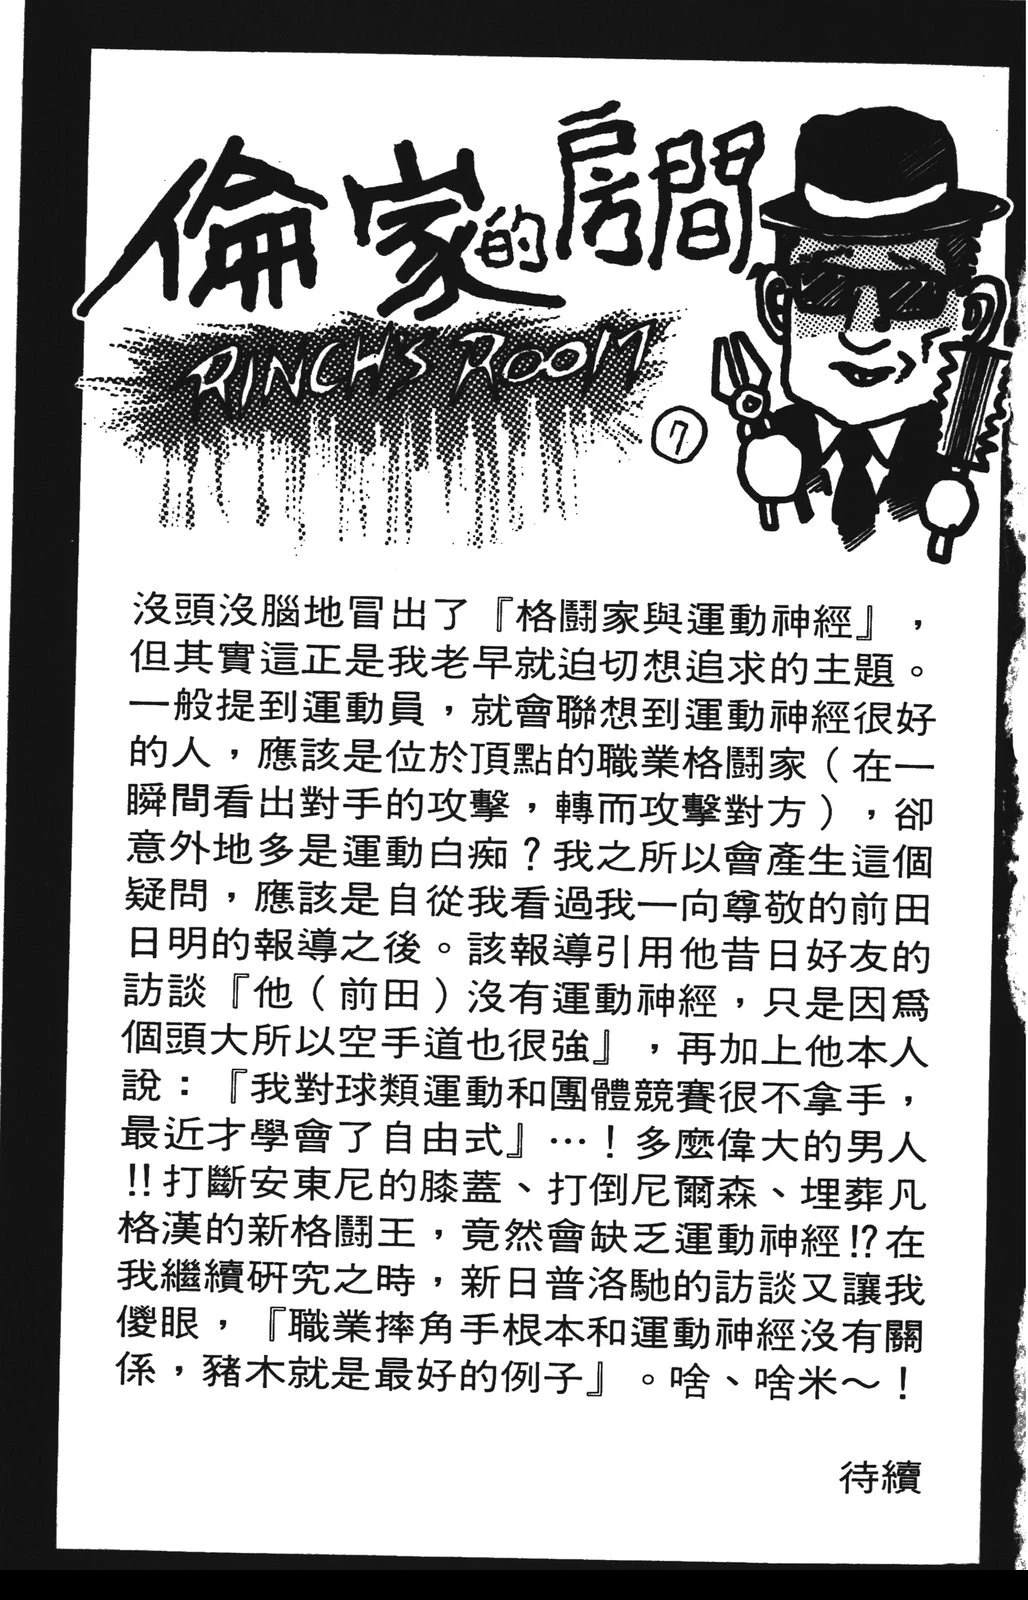 倫家的房間
RINCH'S ROOM
7
沒頭沒腦地冒出了『格鬪家與運動神經』，
但其實這正是我老早就迫切想追求的主題。
一般提到運動員，就會聯想到運動神經很好
的人，應該是位於頂點的職業格鬪家（在一
瞬間看出對手的攻擊，轉而攻擊對方），卻
意外地多是運動白痴？我之所以會產生這個
疑問，應該是自從我看過我一向尊敬的前田
日明的報導之後。該報導引用他昔日好友的
訪談『他（前田）沒有運動神經，只是因爲
個頭大所以空手道也很強』，再加上他本人
說：『我對球類運動和團體競賽很不拿手，
最近才學會了自由式』…！多麼偉大的男人
!!打斷安東尼的膝蓋、打倒尼爾森、埋葬凡
格漢的新格鬪王，竟然會缺乏運動神經!?在
我繼續研究之時，新日普洛馳的訪談又讓我
傻眼，『職業摔角手根本和運動神經沒有關
係，豬木就是最好的例子』。啥、啥米～！
待續